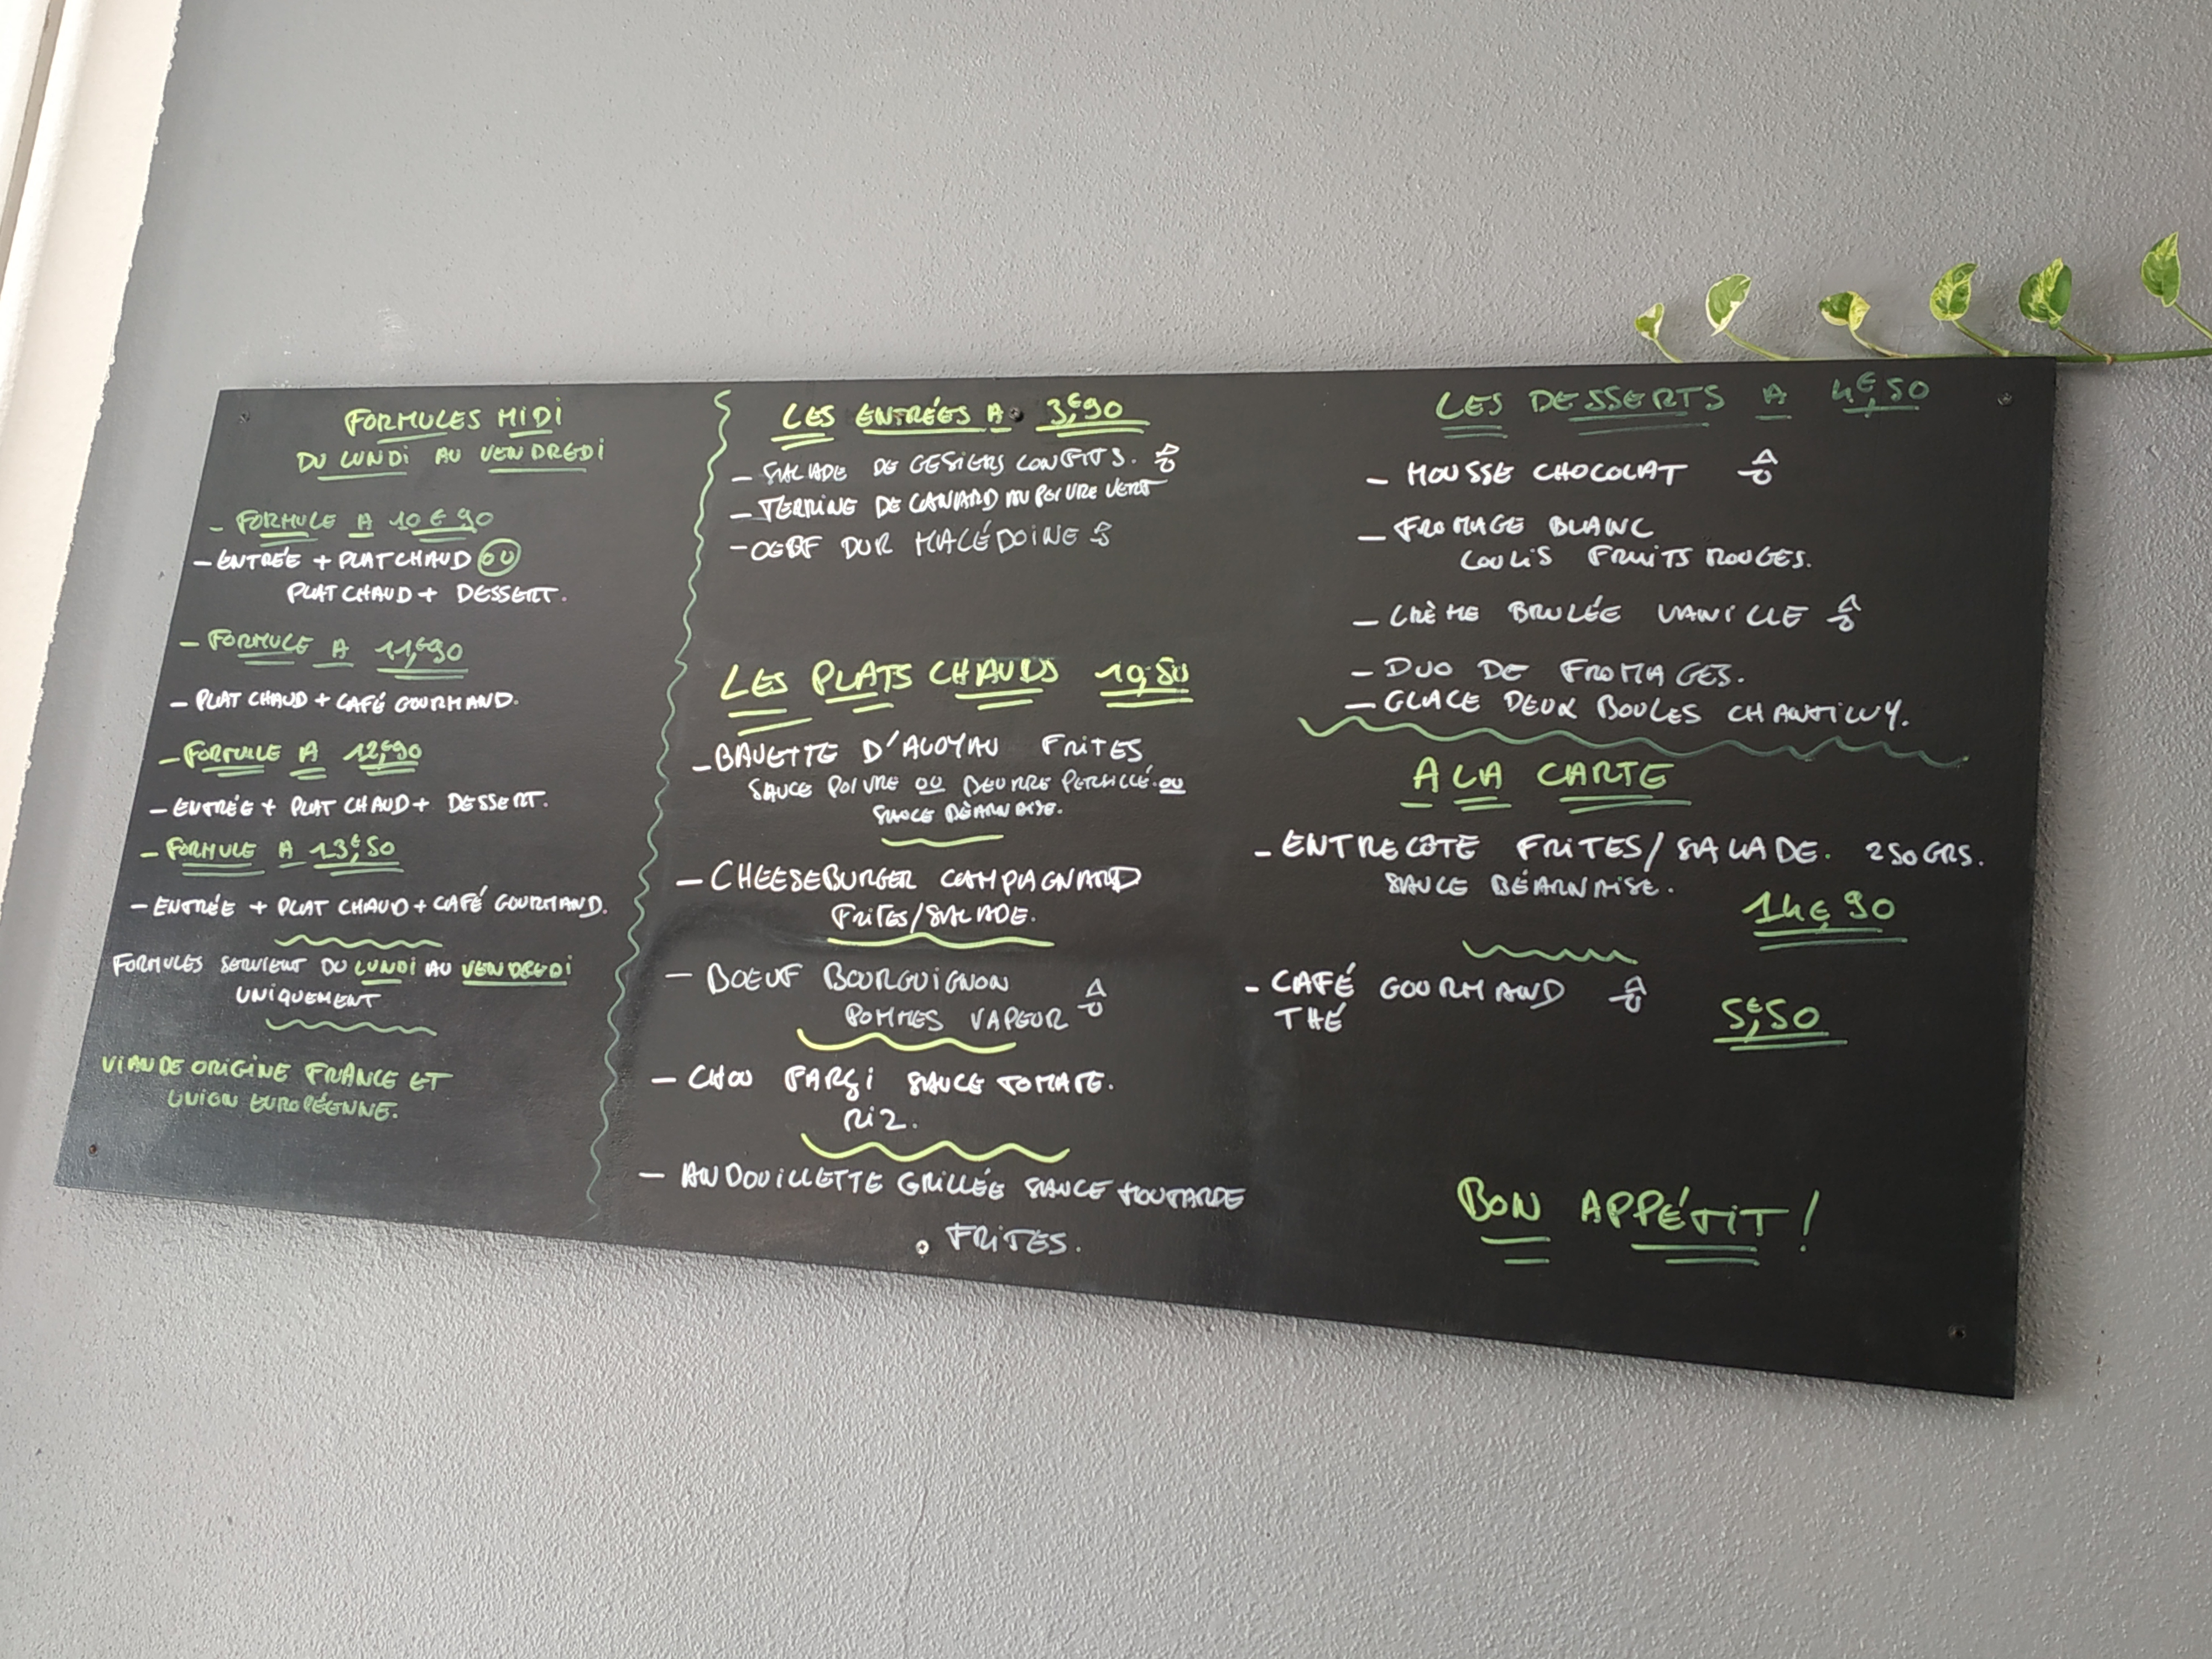 FORMULES MIDI
DU LUNDI AU VENDREDI
- FORMULE A 10€90
- ENTRÉE + PLAT CHAUD OU
PLAT CHAUD + DESSERT.
- FORMULE A 11,€90
- PLAT CHAUD + CAFÉ GOURMAND.
- FORMULE A 12,€90
- ENTRÉE + PLAT CHAUD + DESSERT.
- FORMULE A 13,€50
- ENTRÉE + PLAT CHAUD + CAFÉ GOURMAND.
FORMULES SERVIENT DU LUNDI AU VENDREDI
UNIQUEMENT
VIANDE ORIGINE FRANCE ET
UNION EUROPÉENNE.
LES ENTRÉES A 3,€90
- SALADE DE GESIERS CONFITS.
- TERRINE DE CANARD AU POIVRE VERT
- OEUF DUR MACÉDOINE
LES PLATS CHAUDS
- BAVETTE D'ALOYAU FRITES
SAUCE POIVRE OU BEURRE PERSILLÉ. OU
SAUCE BÉARNAISE.
- CHEESEBURGER CAMPAGNARD
FRITES/SALADE.
- BOEUF BOURGUIGNON
POMMES VAPEUR
- CHOU FARÇI SAUCE TOMATE.
RIZ.
- ANDOUILLETTE GRILLÉE SAUCE MOUTARDE
FRITES.
LES DESSERTS A 4,€50
- MOUSSE CHOCOLAT
- FROMAGE BLANC
COULIS FRUITS ROUGES.
- CRÈME BRULÉE VANILLE
- DUO DE FROMAGES.
- GLACE DEUX BOULES CHANTILLY.
A LA CARTE
- ENTRECÔTE FRITES/SALADE. 250GRS.
SAUCE BÉARNAISE.
14€90
- CAFÉ GOURMAND
THÉ
5,€50
BON APPÉTIT !